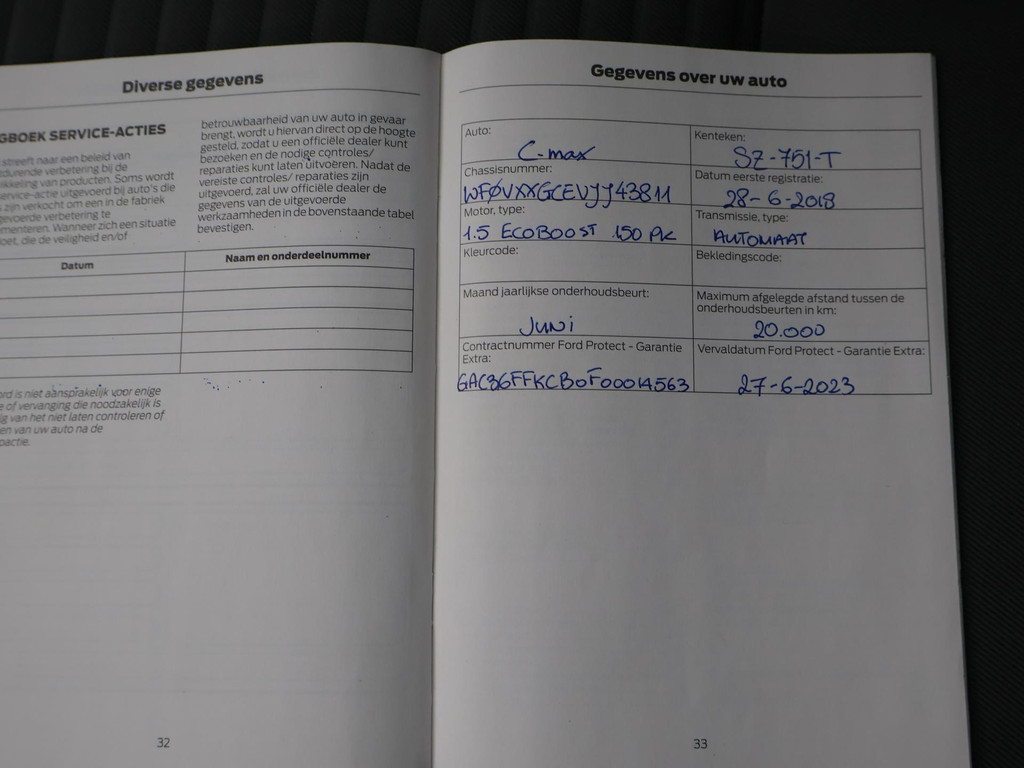 Diverse gegevens
GBOEK SERVICE-ACTIES
streeft naar een beleid van
durende verbetering bij de
ikkeling van producten. Soms wordt
service-actie uitgevoerd bij auto's die
zijn verkocht om een in de fabriek
gevoerde verbetering te
menteren. Wanneer zich een situatie
oet, die de veiligheid en/of
betrouwbaarheid van uw auto in gevaar
brengt, wordt u hiervan direct op de hoogte
gesteld, zodat u een officiële dealer kunt
bezoeken en de nodige controles/
reparaties kunt laten uitvoeren. Nadat de
vereiste controles/ reparaties zijn
uitgevoerd, zal uw officiële dealer de
gegevens van de uitgevoerde
werkzaamheden in de bovenstaande tabel
bevestigen.
Datum Naam en onderdeelnummer
ord is niet aansprakelijk voor enige
e of vervanging die noodzakelijk is
g van het niet laten controleren of
en van uw auto na de
actie.
32
Gegevens over uw auto
Auto: Kenteken:
C-max SZ-751-T
Chassisnummer: Datum eerste registratie:
WFØVXXGCEVJJ43811 28-6-2018
Motor, type: Transmissie, type:
1.5 ECOBOOST 150 PK AUTOMAAT
Kleurcode: Bekledingscode:
Maand jaarlijkse onderhoudsbeurt: Maximum afgelegde afstand tussen de
onderhoudsbeurten in km:
Juni 20.000
Contractnummer Ford Protect - Garantie Vervaldatum Ford Protect - Garantie Extra:
Extra:
GAC36FFKCB0F00014563 27-6-2023
33